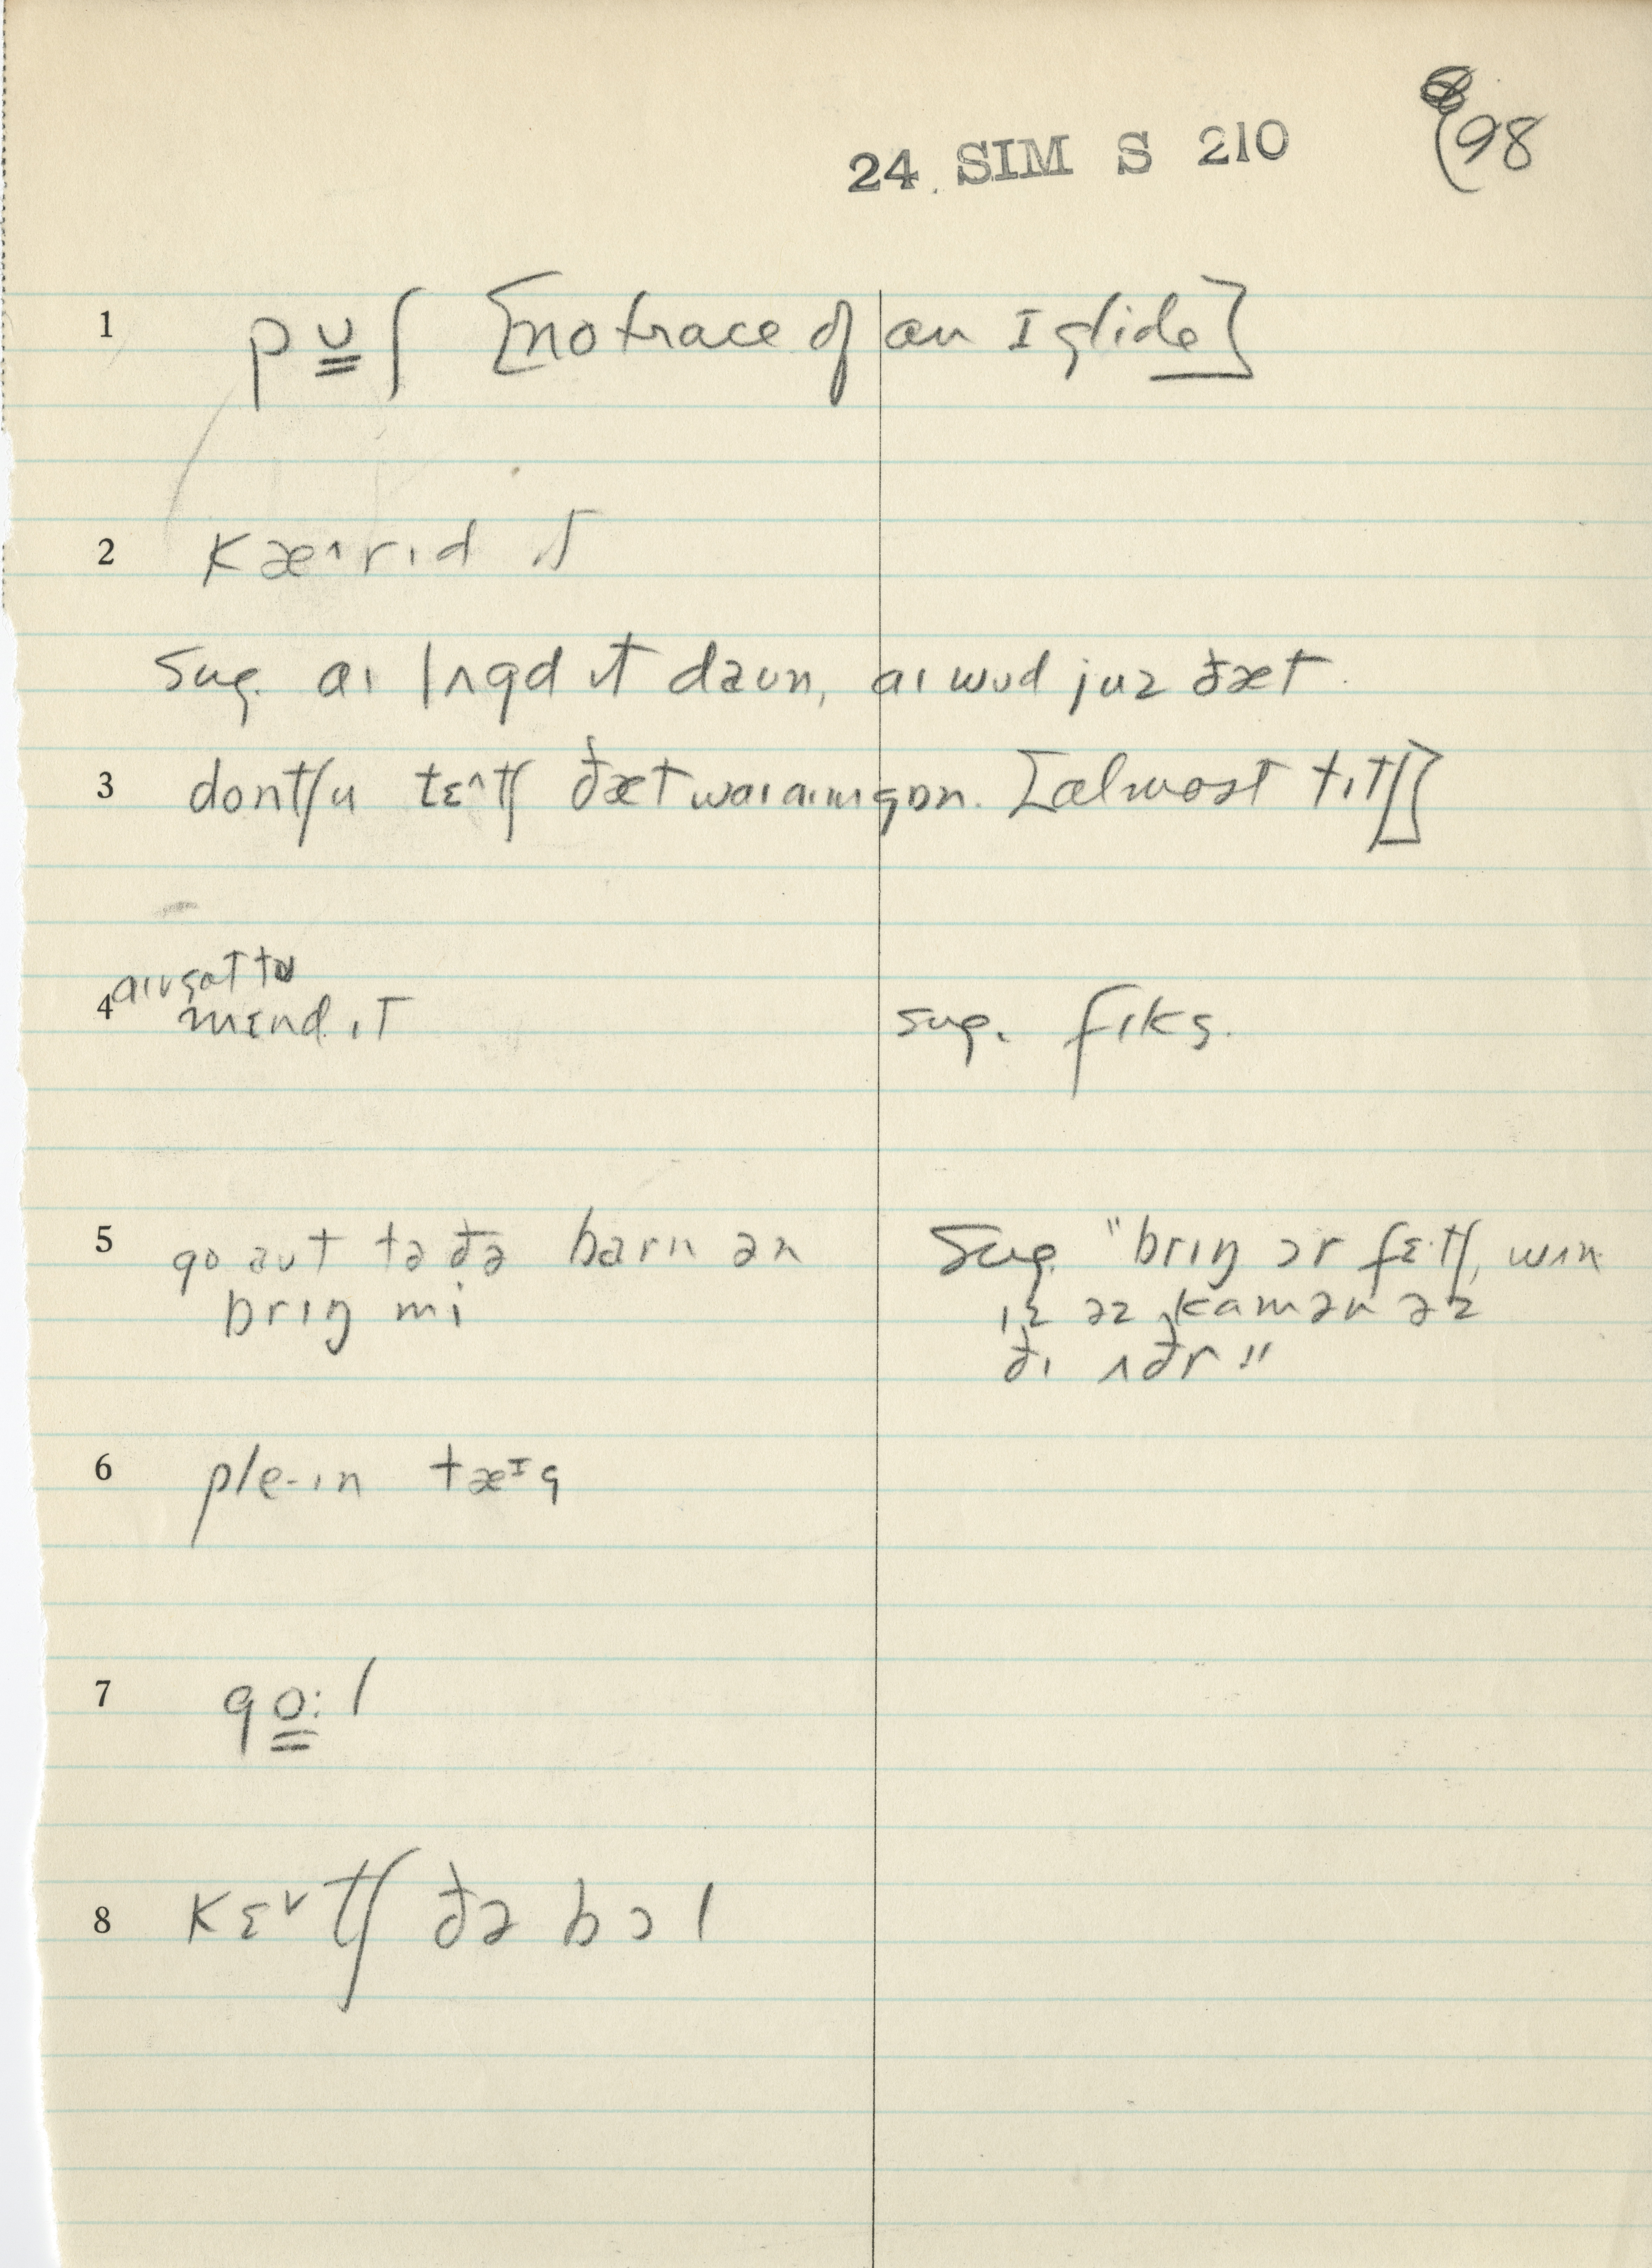 24 SIM S 210 98
1 pʊʃ [no trace of an ɪ glide]
2 kæ˄rɪd ɪt
sug. aɪ lʌgd ɪt daun, aɪ wʊd juz ðæt.
3 dontʃu tɛ˄tʃ ðæt waɪ aɪm gɒn. [almost tɪtʃ]
4 aɪv gɑt tʊ
mɛnd ɪt sug. fɪks.
5 go aʊt tə ðə barn ən sug. "brɪŋ ɔr fɛ·tʃ, wʌn
brɪŋ mi ɪz əz kamən əz
ðɪ ʌðr"
6 ple-ɪn tæᶦg
7 go:l
8 kɛ˅tʃ ðə bɔl